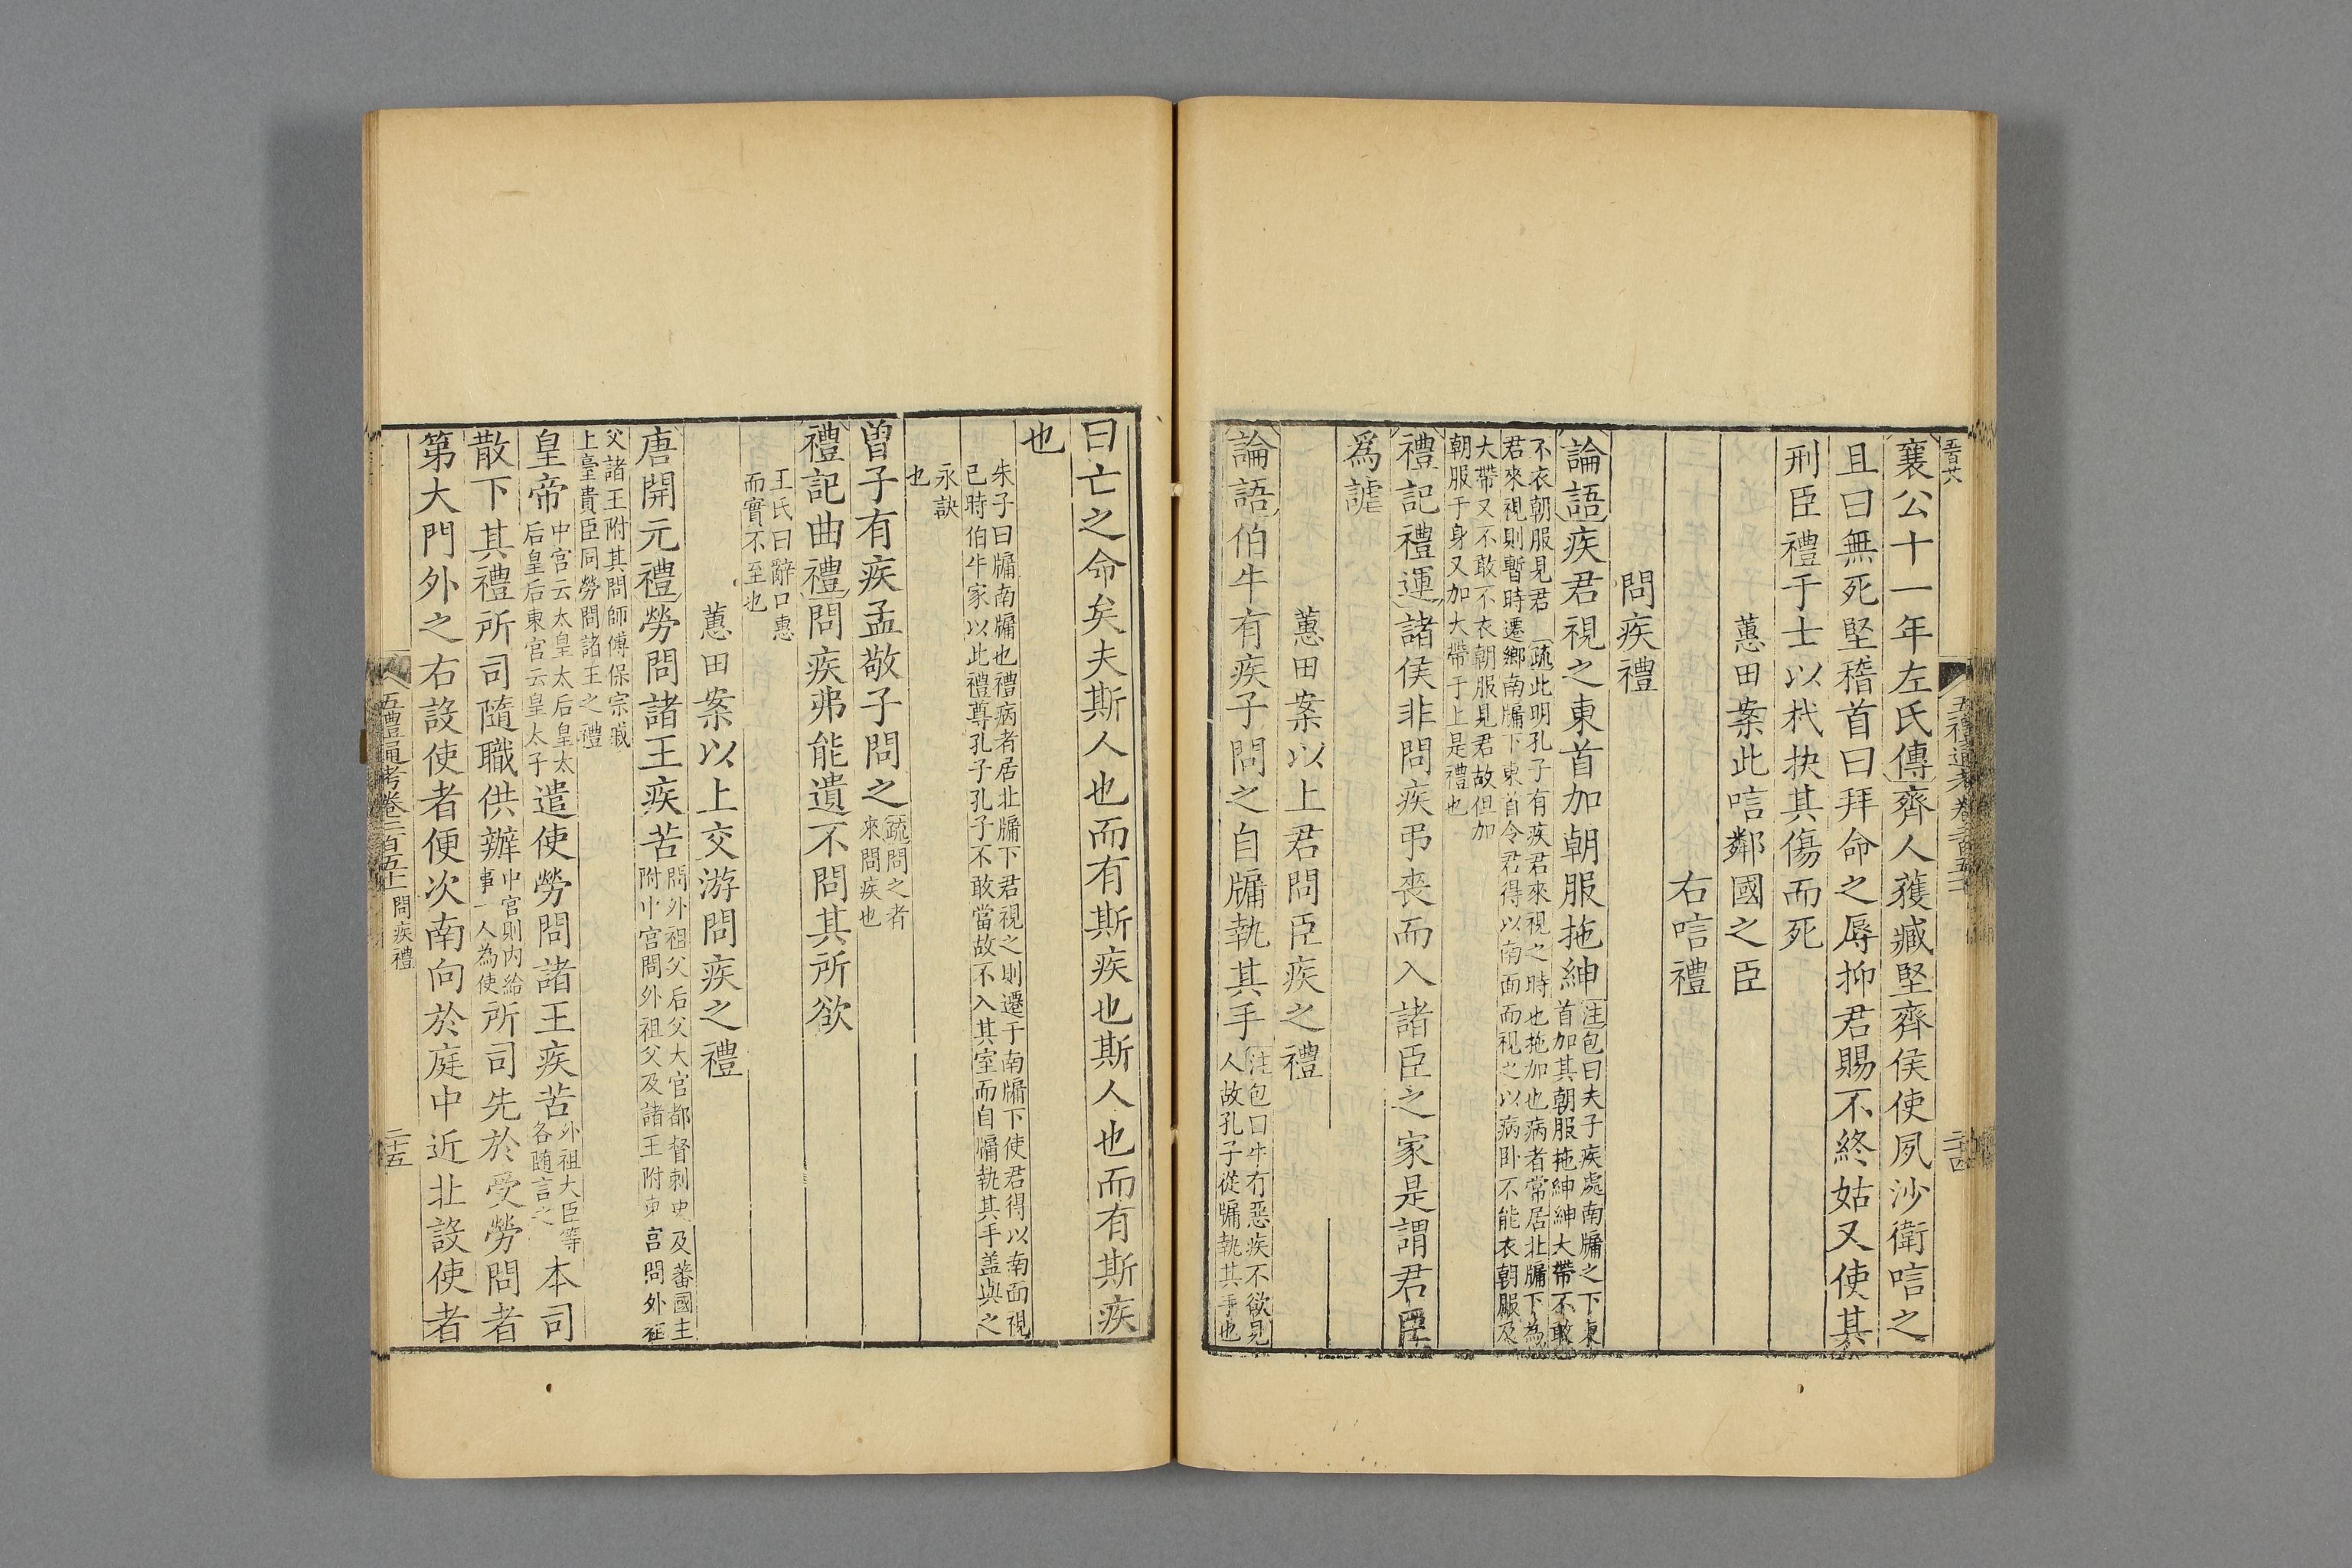 襄公十一年左氏傳齊人獲臧堅齊侯使夙沙衛唁之
且曰無死堅稽首曰拜命之辱抑君賜不終姑又使其
刑臣禮于士以杙抉其傷而死
蕙田案此唁鄰國之臣
右唁禮
問疾禮
論語疾君視之東首加朝服拖紳注包曰夫子疾處南牖之下東
首加其朝服拖紳紳大帶不敢
不衣朝服見君 疏此明孔子有疾君來視之時也拖加也病者常居北牖下為
君來視則暫時遷鄉南牖下東首令君得以南面而視之以病卧不能衣朝服及
大帶又不敢不衣朝服見君故但加
朝服于身又加大帶于上是禮也
禮記禮運諸侯非問疾弔喪而入諸臣之家是謂君臣
爲謔
蕙田案以上君問臣疾之禮
論語伯牛有疾子問之自牖執其手注包曰牛有惡疾不欲見
人故孔子從牖執其手也
曰亡之命矣夫斯人也而有斯疾也斯人也而有斯疾
也
朱子曰牖南牖也禮病者居北牖下君視之則遷于南牖下使君得以南面視
已時伯牛家以此禮尊孔子孔子不敢當故不入其室而自牖執其手盖與之
永訣
也
曾子有疾孟敬子問之疏問之者
來問疾也
禮記曲禮問疾弗能遺不問其所欲
王氏曰辭口惠
而實不至也
蕙田案以上交游問疾之禮
唐開元禮勞問諸王疾苦問外祖父后父大官都督刺史及蕃國主
附中宮問外祖父及諸王附東宮問外祖
父諸王附其問師傅保宗戚
上臺貴臣同勞問諸王之禮
皇帝中宮云太皇太后皇太
后皇后東宮云皇太子遣使勞問諸王疾苦外祖大臣等
各随言之本司
散下其禮所司隨職供辦中宮則内給
事一人為使所司先於受勞問者
第大門外之右設使者便次南向於庭中近北設使者
五禮通考卷二百五十一 問疾禮
二十五